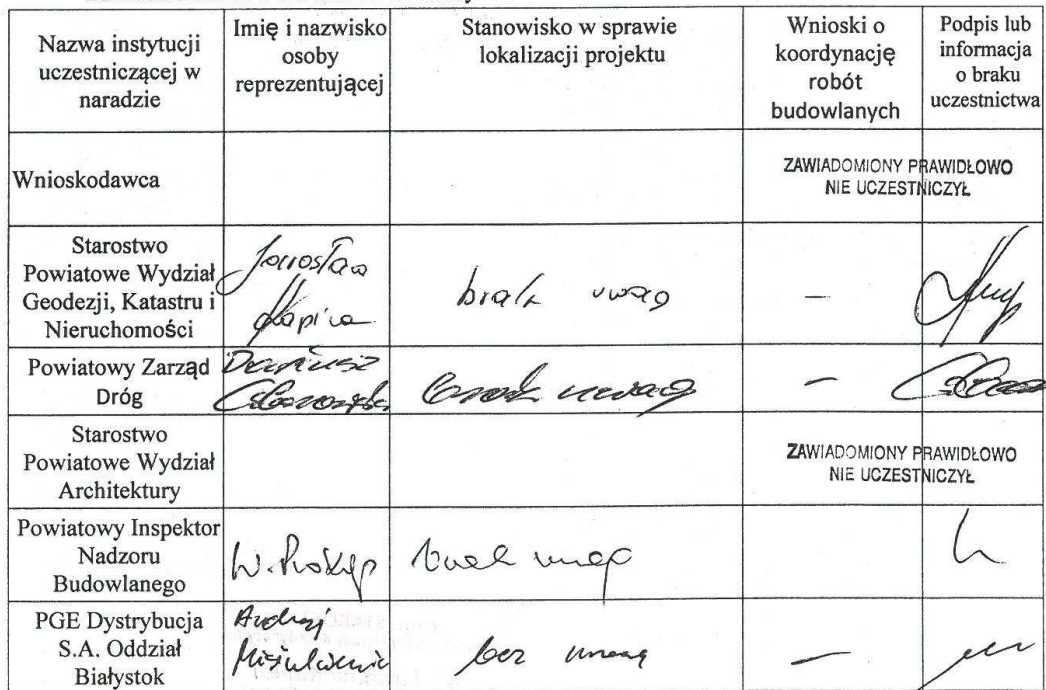 Nazwa instytucji
uczestniczącej w
naradzie
Imię i nazwisko
osoby
reprezentującej
Stanowisko w sprawie
lokalizacji projektu
Wnioski o
koordynację
robót
budowlanych
Podpis lub
informacja
o braku
uczestnictwa
Wnioskodawca
ZAWIADOMIONY PRAWIDŁOWO
NIE UCZESTNICZYŁ
Starostwo
Powiatowe Wydział
Geodezji, Katastru i
Nieruchomości
Jarosław
brak uwag
—
Powiatowy Zarząd
Dróg
Dariusz
brak uwag
—
Starostwo
Powiatowe Wydział
Architektury
ZAWIADOMIONY PRAWIDŁOWO
NIE UCZESTNICZYŁ
Powiatowy Inspektor
Nadzoru
Budowlanego
W. Prokop
brak uwag
PGE Dystrybucja
S.A. Oddział
Białystok
Andrzej
bez uwag
—